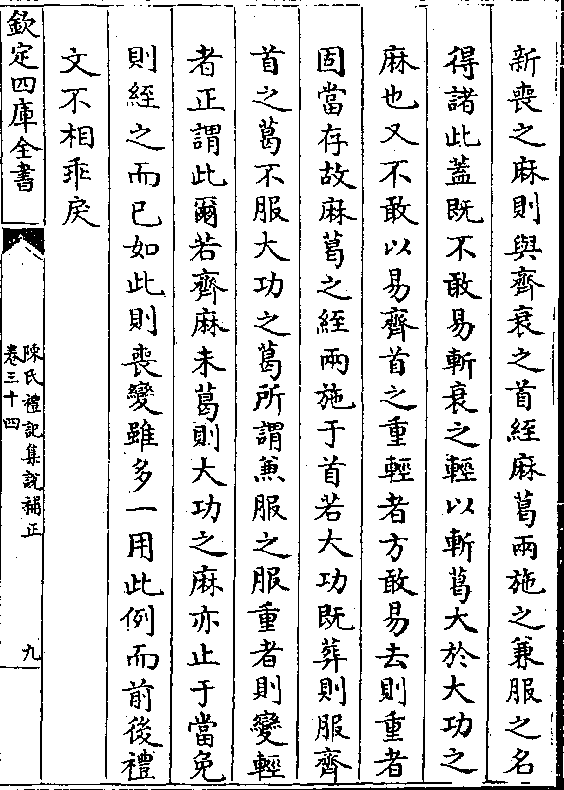 新喪之麻則與齊衰之首絰麻葛兩施之兼服之名
得諸此蓋既不敢易斬衰之輕以斬葛大於大功之
麻也又不敢以易齊首之重輕者方敢易去則重者
固當存故麻葛之絰兩施于首若大功既葬則服齊
首之葛不服大功之葛所謂兼服之服重者則變輕
者正謂此爾若齊麻未葛則大功之麻亦止于當免
則絰之而已如此則喪變雖多一用此例而前後禮
文不相乖戾
欽定四庫全書
陳氏禮記集說補正
卷三十四
九